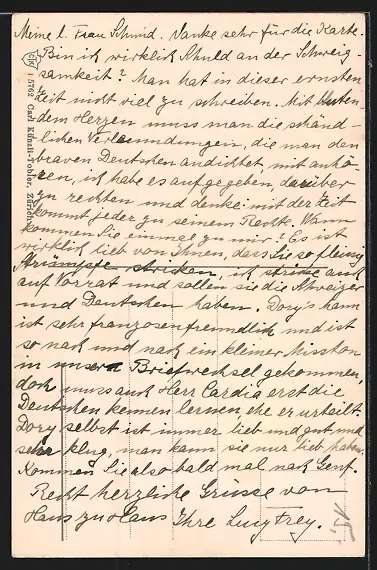 Meine l. Frau Schmid. Danke sehr für die Karte.
Bin ich wirklich Schuld an der Schweig-
samkeit? Man hat in dieser ernsten
Zeit nicht viel zu schreiben. Mit bluten
dem Herzen muss man die schänd-
lichen Verleumdungen, die man den
braven Deutschen andichtet, mit anhö-
ren, ich habe es aufgegeben, darüber
zu rechten und denke: mit der Zeit
kommt jeder zu seinem Rechte. Wann
kommen Sie einmal zu mir? Es ist
wirklich lieb von Ihnen, dass Sie so fleissig
Strümpfe stricken, ich stricke auch
auf Vorrat und sollen sie die Schweizer
und Deutschen haben. Dory's kann
ist sehr franzosenfreundlich und ist
so nach und nach ein kleiner Misston
in unsern Briefwechsel gekommen,
doch muss auch Herr Cardia erst die
Deutschen kennen lernen, ehe er urteilt.
Dory selbst ist immer lieb und gut und
sehr klug, man kann sie nur lieb haben.
Kommen Sie also bald mal nach Genf.
Recht herzliche Grüsse von
Haus zu Haus Ihre Lucy Frey.
5762 Carl Künzli-Tobler, Zürich